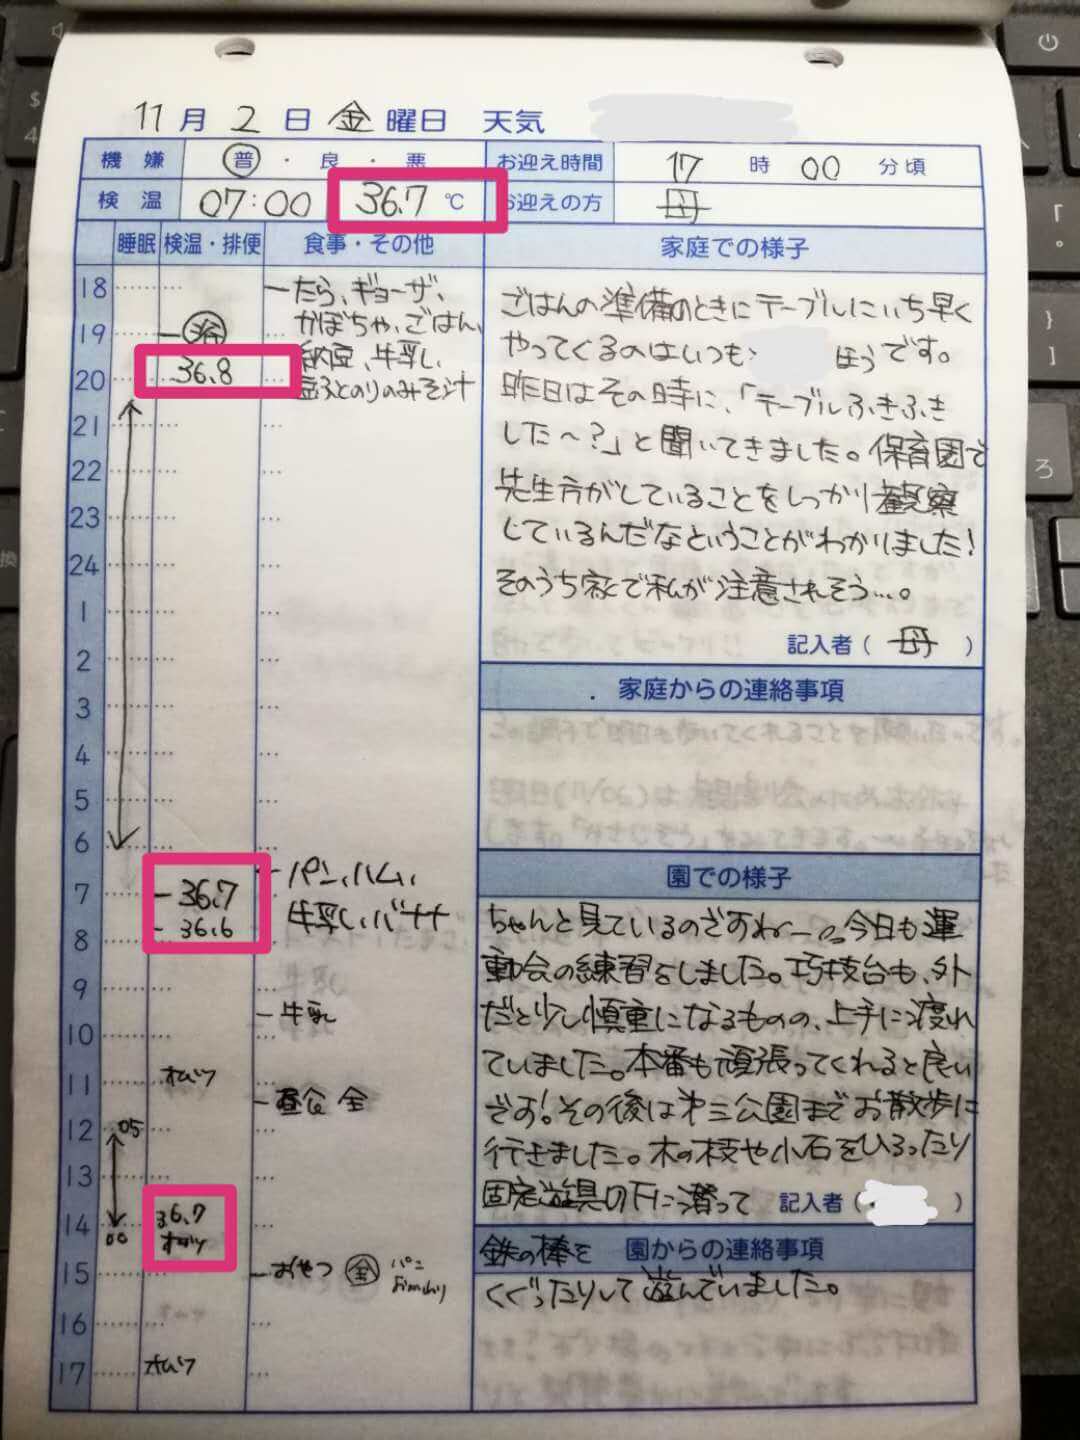 11月2日金曜日 天気
機嫌 普・良・悪 お迎え時間 17時00分頃
検温 07:00 36.7℃ お迎えの方 母
睡眠 検温・排便 食事・その他 家庭での様子
18 たら、ギョーザ、
かぼちゃ、ごはん、
19 浴
納豆、牛乳、
20 36.8
豆ふとのりのみそ汁
21
22
23
24
1
2
3
4
5
6
7 36.7 パン、ハム、
36.6 牛乳、バナナ
8
9
牛乳
10
11 オムツ
昼食 全
12 05
13
14 36.7
00 オムツ
15 おやつ 全 パン
16
17 オムツ
ごはんの準備のときにテーブルにいち早く
やってくるのはいつも ほうです。
昨日はその時に、「テーブルふきふき
した〜?」と聞いてきました。保育園で
先生方がしていることをしっかり観察
しているんだなということがわかりました!
そのうち家で私が注意されそう…。
記入者(母)
家庭からの連絡事項
園での様子
ちゃんと見ているのですね〜。今日も運
動会の練習をしました。巧技台も、外
だと少し慎重になるものの、上手に渡れ
ていました。本番も頑張ってくれると良い
です!その後は第三公園までお散歩に
行きました。木の枝や小石をひろったり
固定遊具の下に潜って 記入者( )
鉄の棒を 園からの連絡事項
くぐったりして遊んでいました。